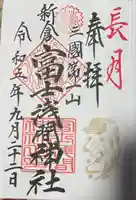 長月
奉拝
三國第一山
新倉
富士浅間神社
令和三年九月二十二日